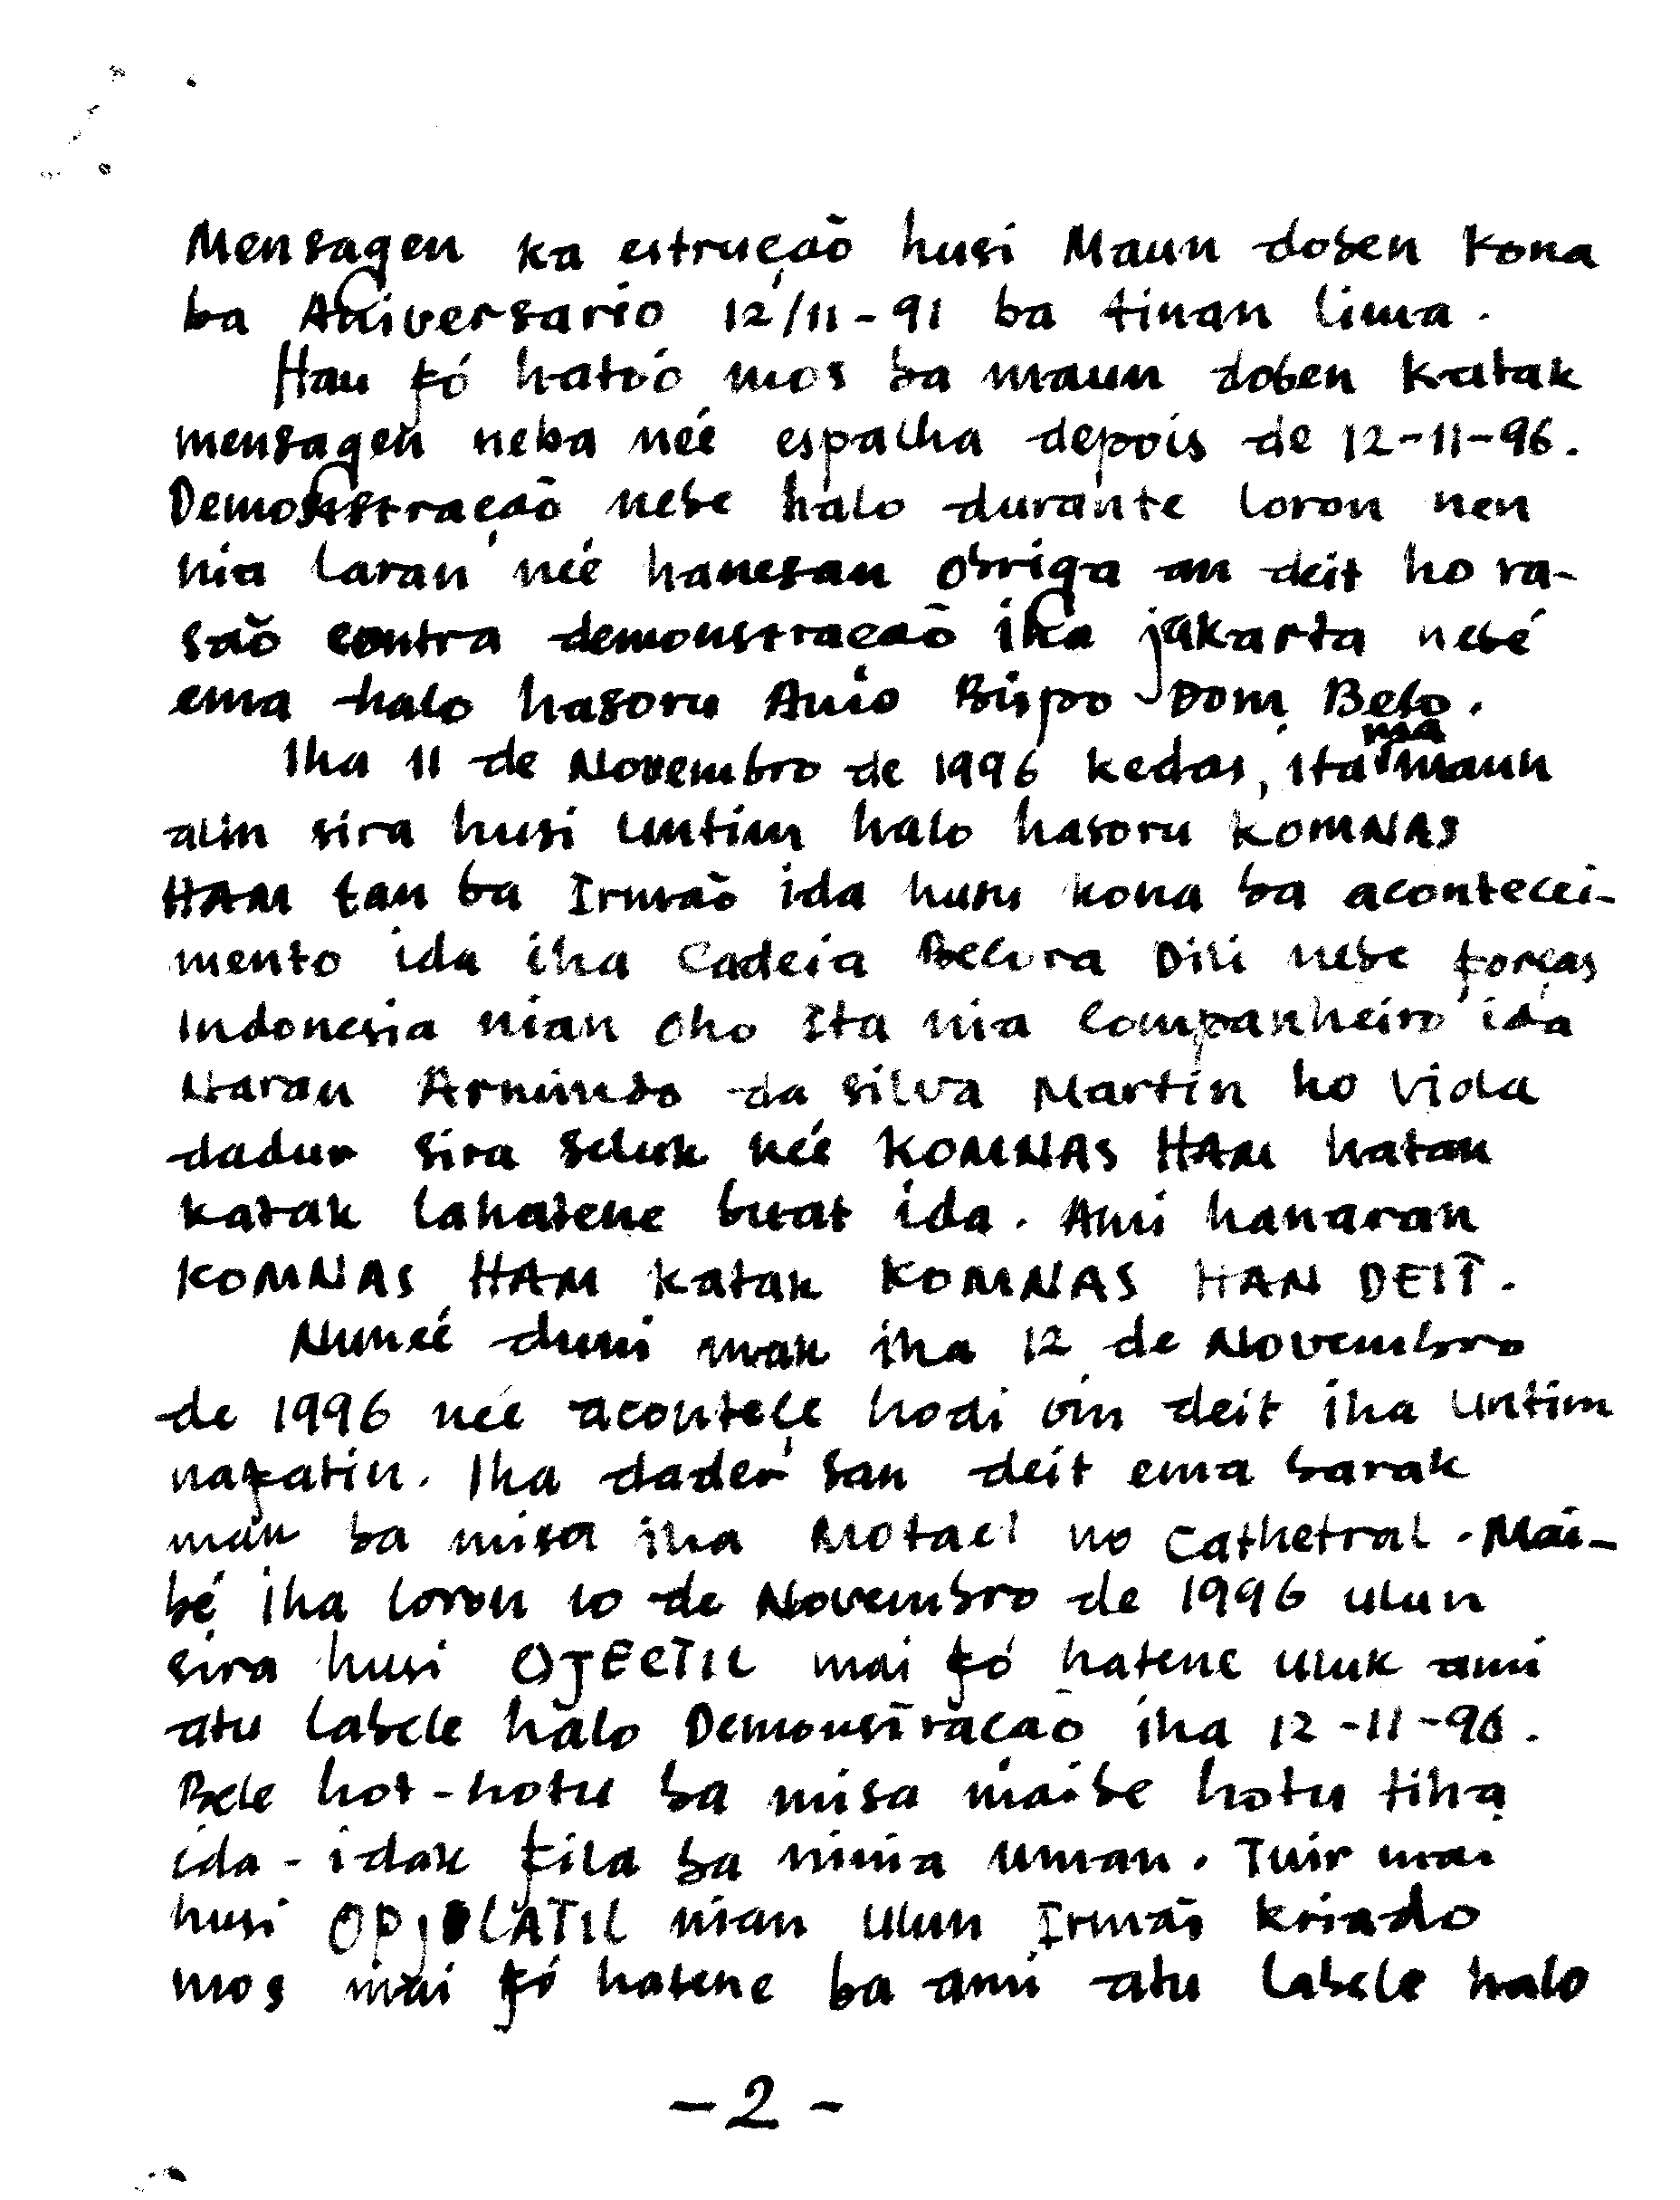 Mensagen ka estrução husi Maun doben kona
ba Aniversario 12/11-91 ba tinan lima.
Hau fó ható'o mos ba maun doben katak
mensagen neba neé espalha depois de 12-11-96.
Demonstração nebe halo durante loron nen
nia laran neé hanesan obriga an deit ho ra-
são contra demonstração iha jakarta nebé
ema halo hasoru Amo Bispo Dom Belo.
Iha 11 de Novembro de 1996 kedas, ita nia maun
alin sira husi Untim halo hasoru KOMNAS
HAM tan ba Irmão ida husu kona ba acontecei-
mento ida iha Cadeia Becora Dili nebe forças
Indonesia nian oho ita nia companheiro ida
Naran Armindo da silva Martin ho vida
dadur sira seluk neé KOMNAS HAM hatan
katak lahatene buat ida. Ami hanaran
KOMNAS HAM katak KOMNAS HAN DEIT.
Nuneé duni mak iha 12 de Novembro
de 1996 neé aconteçe hodi oin deit iha Untim
nafatin. Iha dader san deit ema barak
mak ba misa iha Motael no Cathetral. Mai-
bé iha loron 10 de Novembro de 1996 ulun
sira husi OJECTIL mai fó hatene uluk ami
atu labele halo Demonstração iha 12-11-96.
Bele hot-hotu ba misa maibe hotu tiha
ida-idak fila ba ninia uman. Tuir mai
husi OPJLATIL nian ulun Irmão kriado
mos mai fó hatene ba ami atu labele halo
-2-